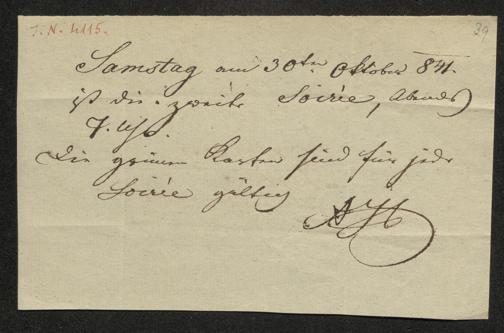 J. N. 4115.
39
Samstag am 30ten Oktober 841.
ist die zweite Soirée, Abends
7. Uhr.
Die grünen Karten sind für jede
Soirée gültig